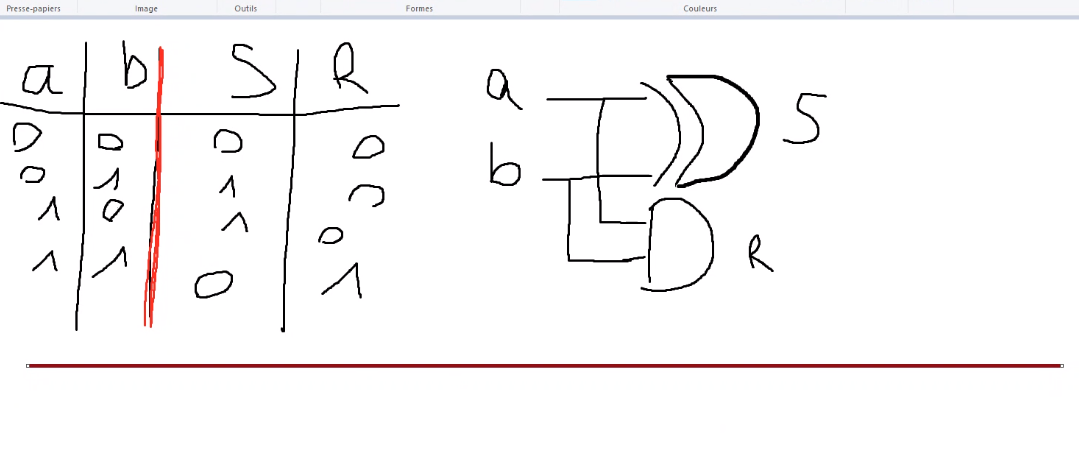 Presse-papiers Image Outils Formes Couleurs
a b S R
0 0 0 0
0 1 1 0
1 0 1 0
1 1 0 1
a
b
S
R